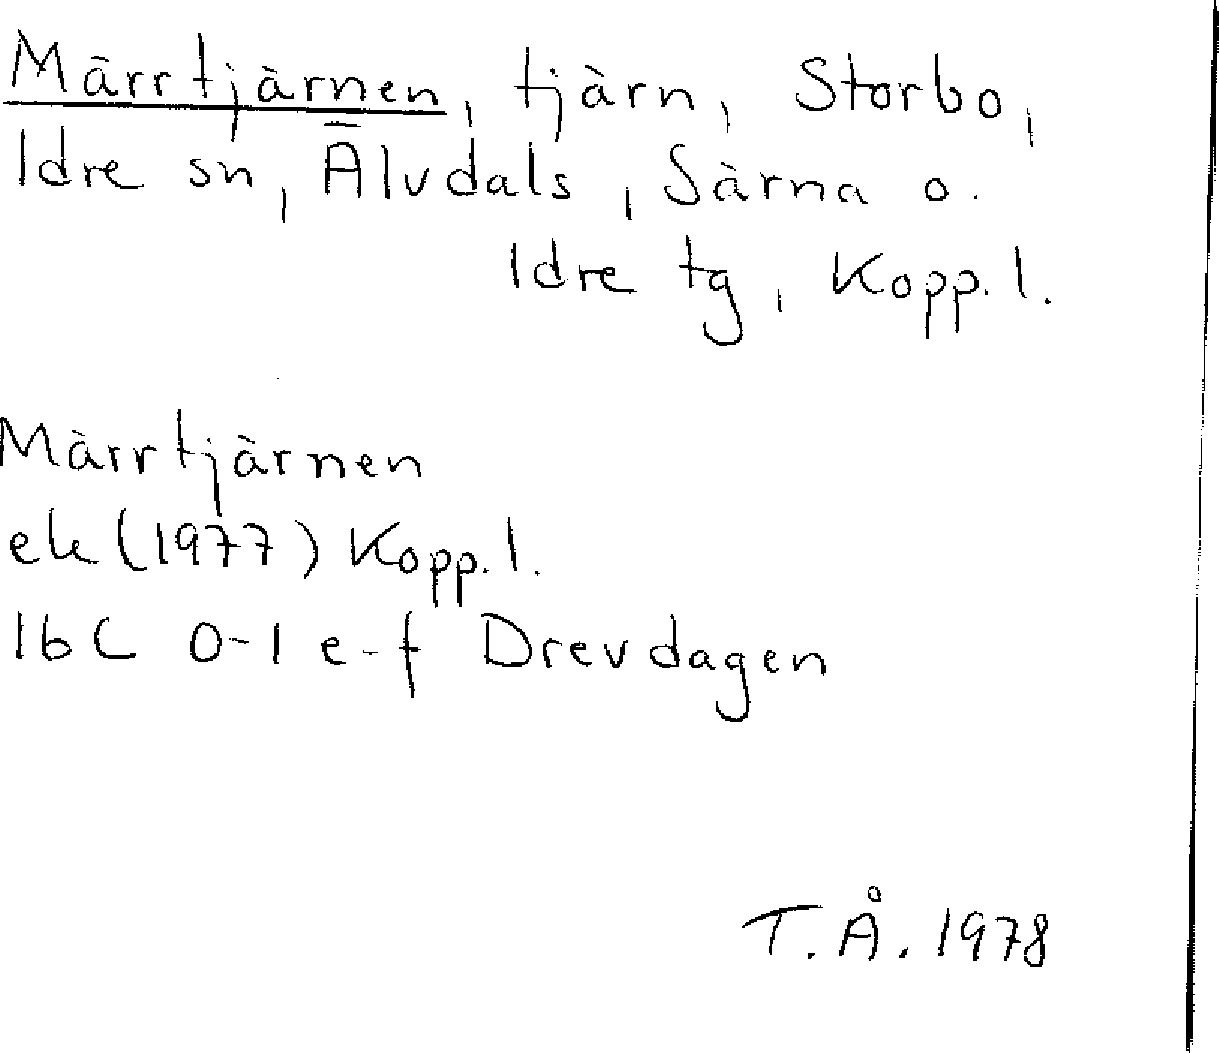 Märrtjärnen, tjärn, Storbo,
Idre sn, Älvdals, Särna o.
Idre tg, Kopp. l.
Märrtjärnen
ek (1977) Kopp. l.
16C 0-1 e-f Drevdagen
T.Å. 1978